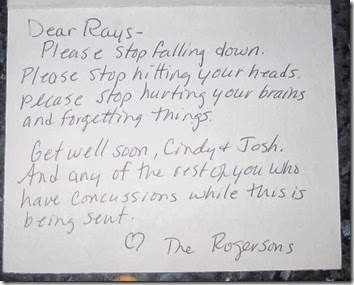 Dear Rays-
Please stop falling down.
Please stop hitting your heads.
Please stop hurting your brains
and forgetting things.
Get well soon, Cindy & Josh.
And any of the rest of you who
have concussions while this is
being sent.
♡ The Rogersons